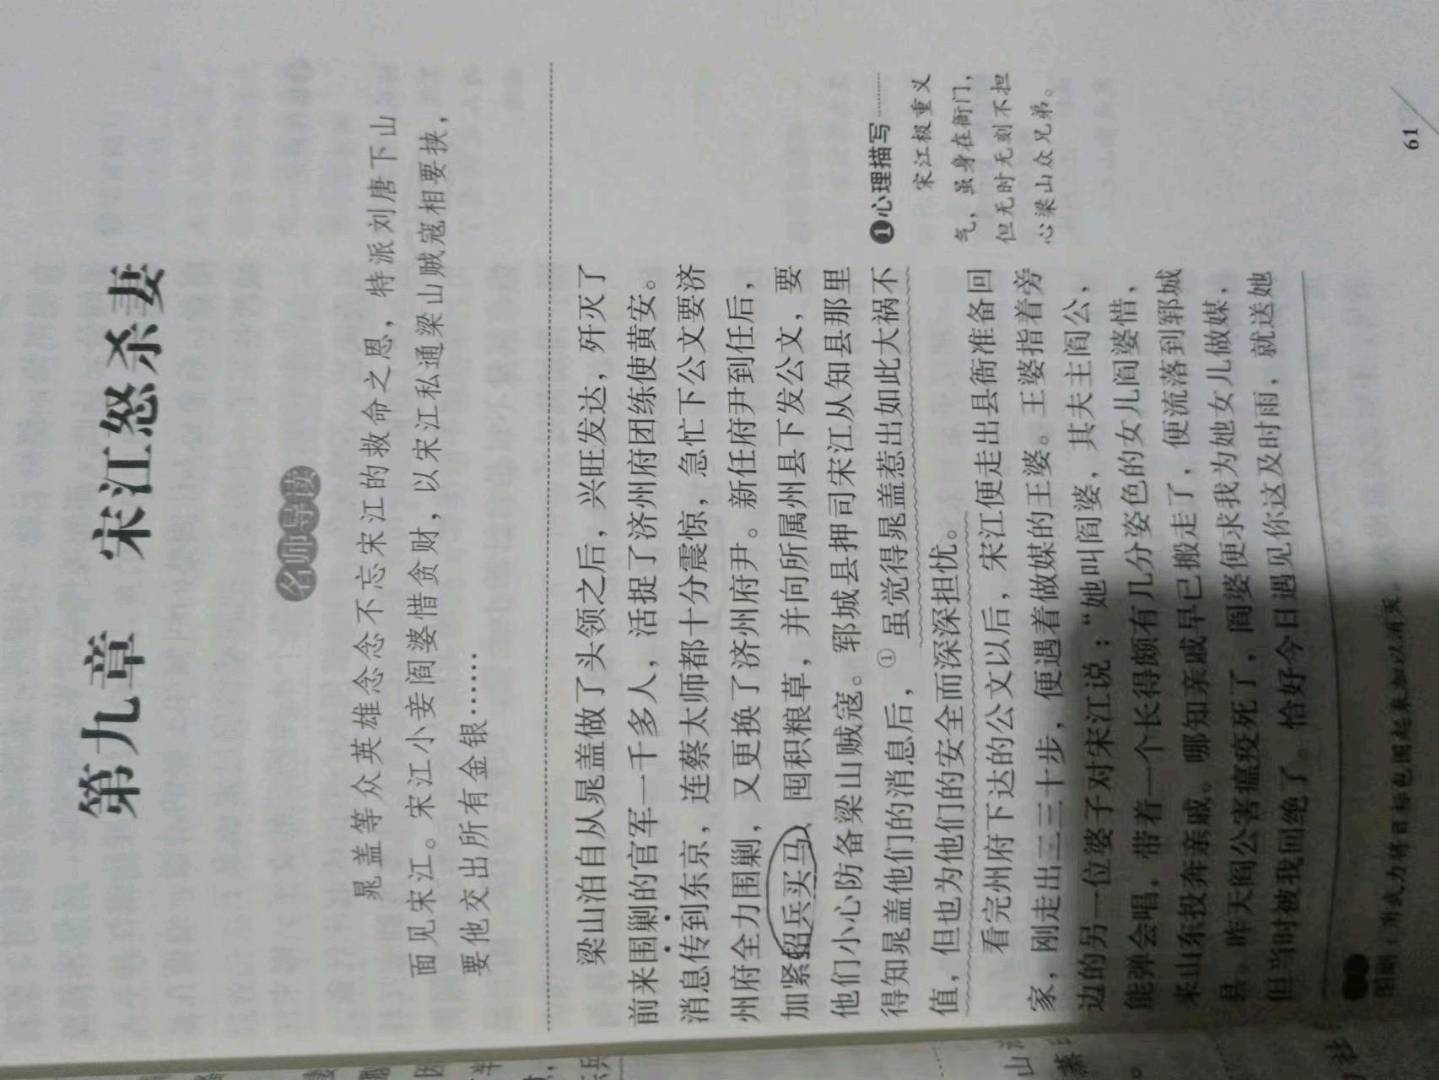 第九章 宋江怒杀妻
名师导读
晁盖等众英雄念念不忘宋江的救命之恩，特派刘唐下山
面见宋江。宋江小妾阎婆惜贪财，以宋江私通梁山贼寇相要挟，
要他交出所有金银……
梁山泊自从晁盖做了头领之后，兴旺发达，歼灭了
前来围剿的官军一千多人，活捉了济州府团练使黄安。
消息传到东京，连蔡太师都十分震惊，急忙下公文要济
州府全力围剿，又更换了济州府尹。新任府尹到任后，
加紧招兵买马、囤积粮草，并向所属州县下发公文，要
他们小心防备梁山贼寇。郓城县押司宋江从知县那里
得知晁盖他们的消息后，①虽觉得晁盖惹出如此大祸不
值，但也为他们的安全而深深担忧。
看完州府下达的公文以后，宋江便走出县衙准备回
家，刚走出二三十步，便遇着做媒的王婆。王婆指着旁
边的另一位婆子对宋江说：“她叫阎婆，其夫主阎公，
能弹会唱，带着一个长得颇有几分姿色的女儿阎婆惜，
来山东投奔亲戚。哪知亲戚早已搬走了，便流落到郓城
县。昨天阎公害瘟疫死了，阎婆便求我为她女儿做媒，
但当时被我回绝了。恰好今日遇见你这及时雨，就送她
❶心理描写
宋江极重义
气，虽身在衙门，
但无时无刻不担
心梁山众兄弟。
围剿：用武力将目标包围起来加以消灭。
61